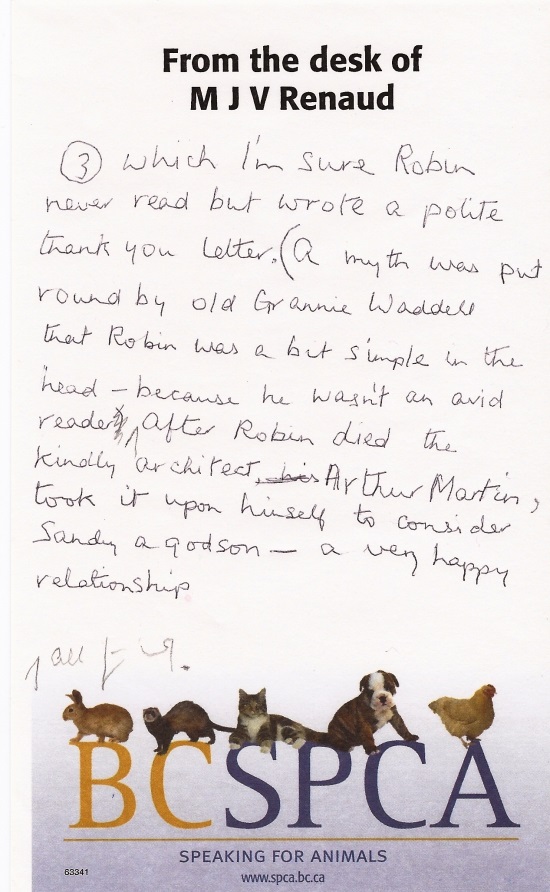 From the desk of
M J V Renaud
③ which I'm sure Robin
never read but wrote a polite
thank you letter. (A myth was put
round by old Grannie Waddell
that Robin was a bit simple in the
head – because he wasn't an avid
reader) After Robin died the
kindly architect, his Arthur Martin,
took it upon himself to consider
Sandy a godson – a very happy
relationship
BCSPCA
SPEAKING FOR ANIMALS
63341
www.spca.bc.ca